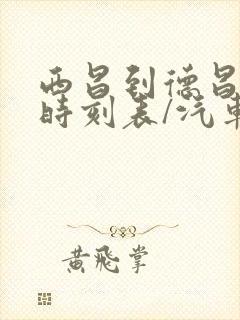 西昌到德昌
時刻表/汽車
黄飛掌